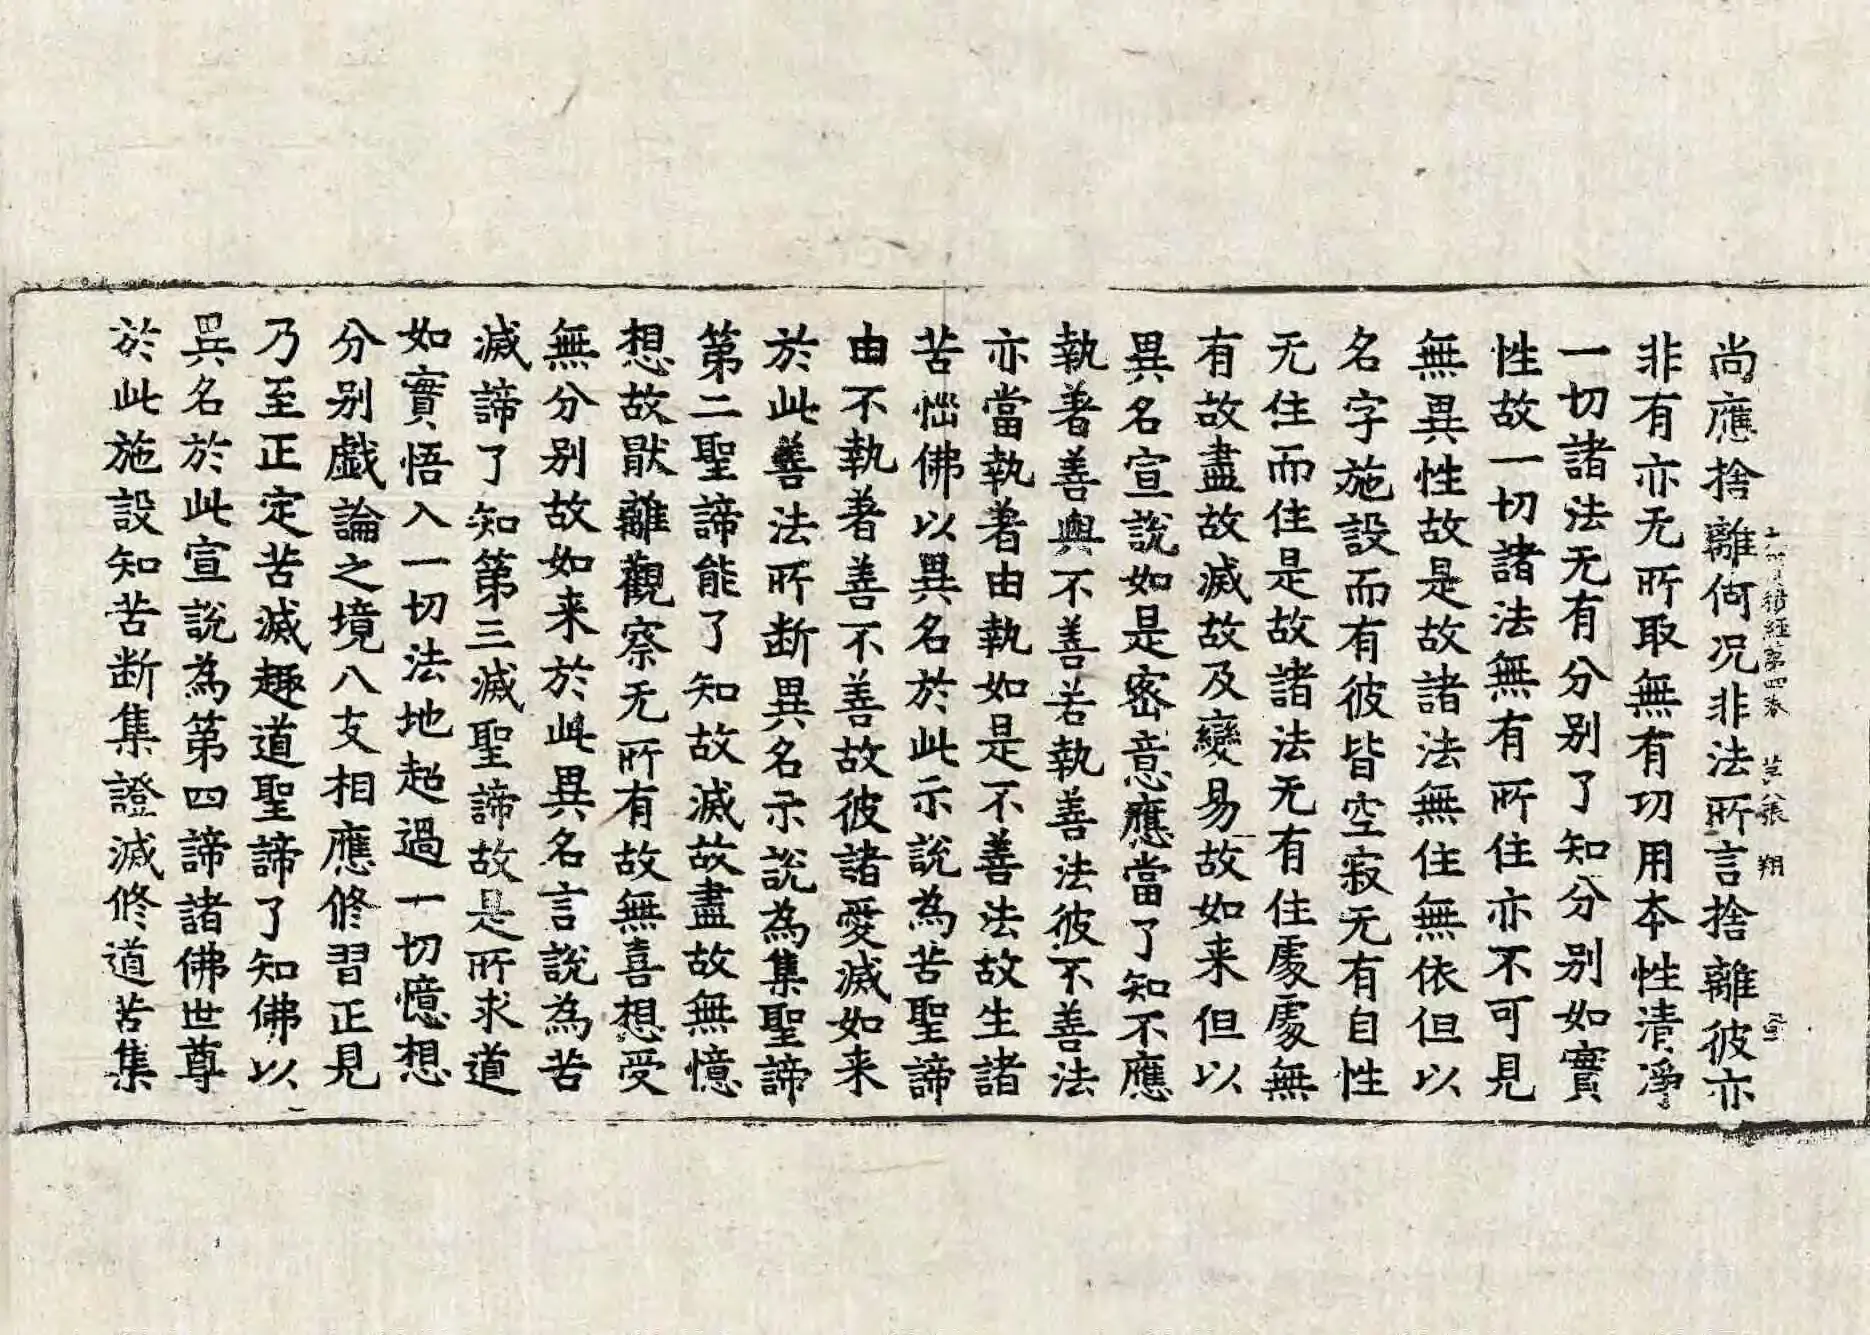 尚應捨離何况非法所言捨離彼亦
非有亦无所取無有切用本性清淨
一切諸法无有分别了知分别如實
性故一切諸法無有所住亦不可見
無異性故是故諸法無住無依但以
名字施設而有彼皆空寂无有自性
无住而住是故諸法无有住處處無
有故盡故滅故及變易故如来但以
異名宣說如是密意應當了知不應
執著善與不善若執善法彼不善法
亦當執著由執如是不善法故生諸
苦惱佛以異名於此示說為苦聖諦
由不執著善不善故彼諸愛滅如来
於此善法所断異名示說為集聖諦
第二聖諦能了知故滅故盡故無憶
想故猒離觀察无所有故無喜想受
無分别故如来於此異名言說為苦
滅諦了知第三滅聖諦故是所求道
如實悟入一切法地超過一切憶想
分别戲論之境八支相應修習正見
乃至正定苦滅趣道聖諦了知佛以
異名於此宣說為第四諦諸佛世尊
於此施設知苦断集證滅修道苦集
積經第四卷 張 翔